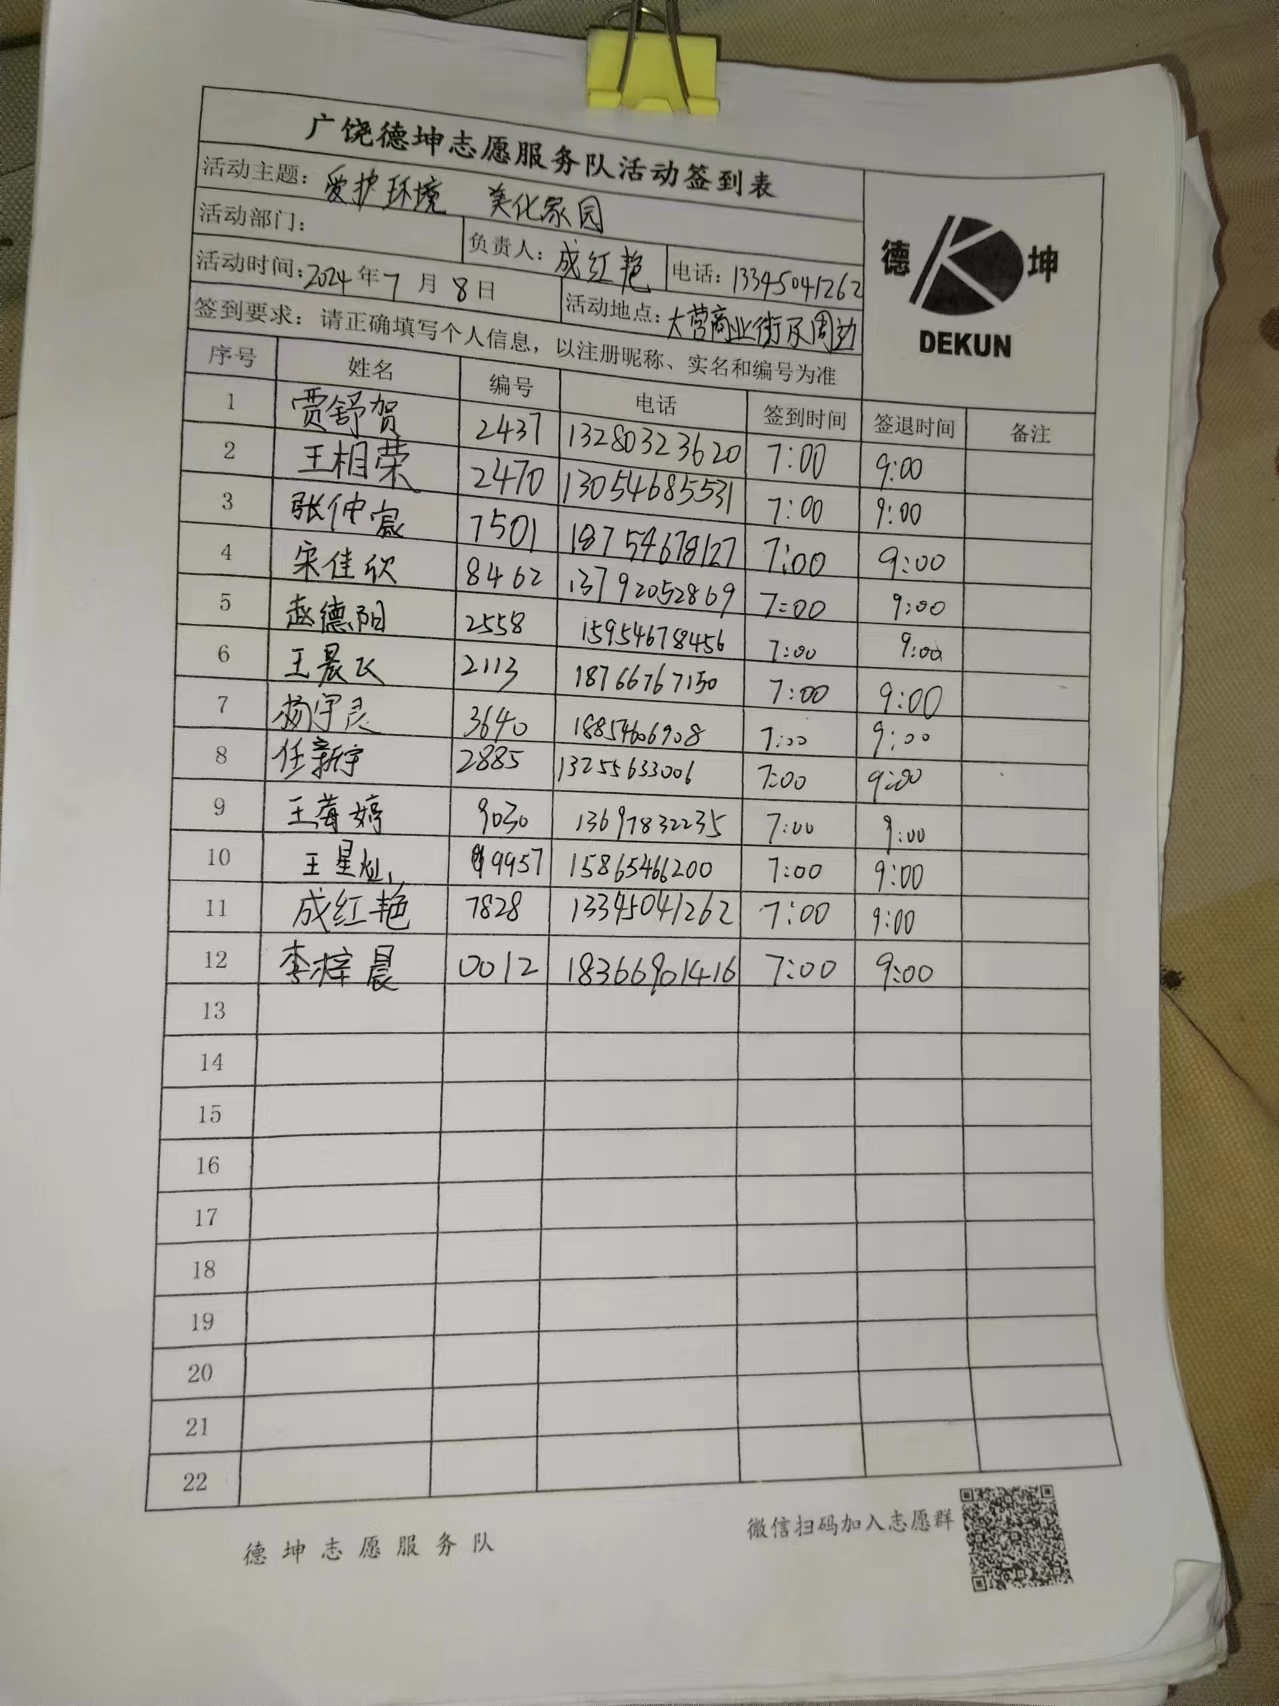 广饶德坤志愿服务队活动签到表
活动主题: 爱护环境 美化家园
活动部门: 负责人: 成红艳 电话: 13345041262
活动时间: 2024年7月8日 活动地点: 大营商业街及周边
签到要求: 请正确填写个人信息, 以注册昵称、实名和编号为准
德 坤
DEKUN
序号 姓名 编号 电话 签到时间 签退时间 备注
1 贾舒贺 2437 13280323620 7:00 9:00
2 王相荣 2470 13054685531 7:00 9:00
3 张仲宸 7501 18754678127 7:00 9:00
4 宋佳欣 8462 13792052869 7:00 9:00
5 赵德阳 2558 15954678456 7:00 9:00
6 王晨飞 2113 18766767150 7:00 9:00
7 杨宇 3640 18854606908 7:00 9:00
8 任新宇 2885 13255633006 7:00 9:00
9 王莓婷 9030 13697832235 7:00 9:00
10 王星灿 9957 15865466200 7:00 9:00
11 成红艳 7828 13345041262 7:00 9:00
12 李梓晨 0012 18366901416 7:00 9:00
13
14
15
16
17
18
19
20
21
22
德坤志愿服务队 微信扫码加入志愿群